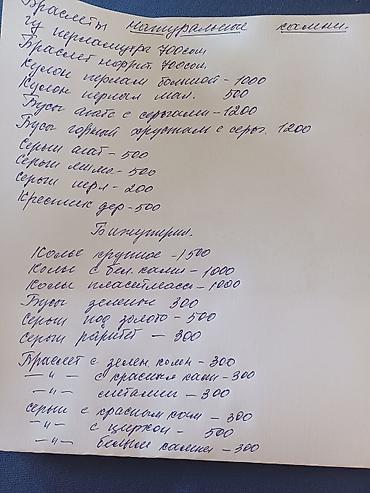 Браслеты Натуральные камни.
из перламутра 700 сом.
Браслет нефрит. 700 сом.
Кулон перлам большой - 1000
Кулон перлам мал. 500
Бусы агат с серьгами - 1200
Бусы горный хрусталь с серьг. 1200
Серьги агат - 500
Серьги - 500
Серьги перл - 200
Крестик дер - 500
Бижутерия.
Колье крупное - 1500
Колье с бел. камн - 1000
Колье пластмасс - 1000
Бусы зеленые 300
Серьги под золото - 500
Серьги раритет - 300
Браслет с зелен камн - 300
—"— с красным камн - 300
—"— 300
Серьги с красным кам - 300
—"— с циркон - 500
—"— белым камнем - 300